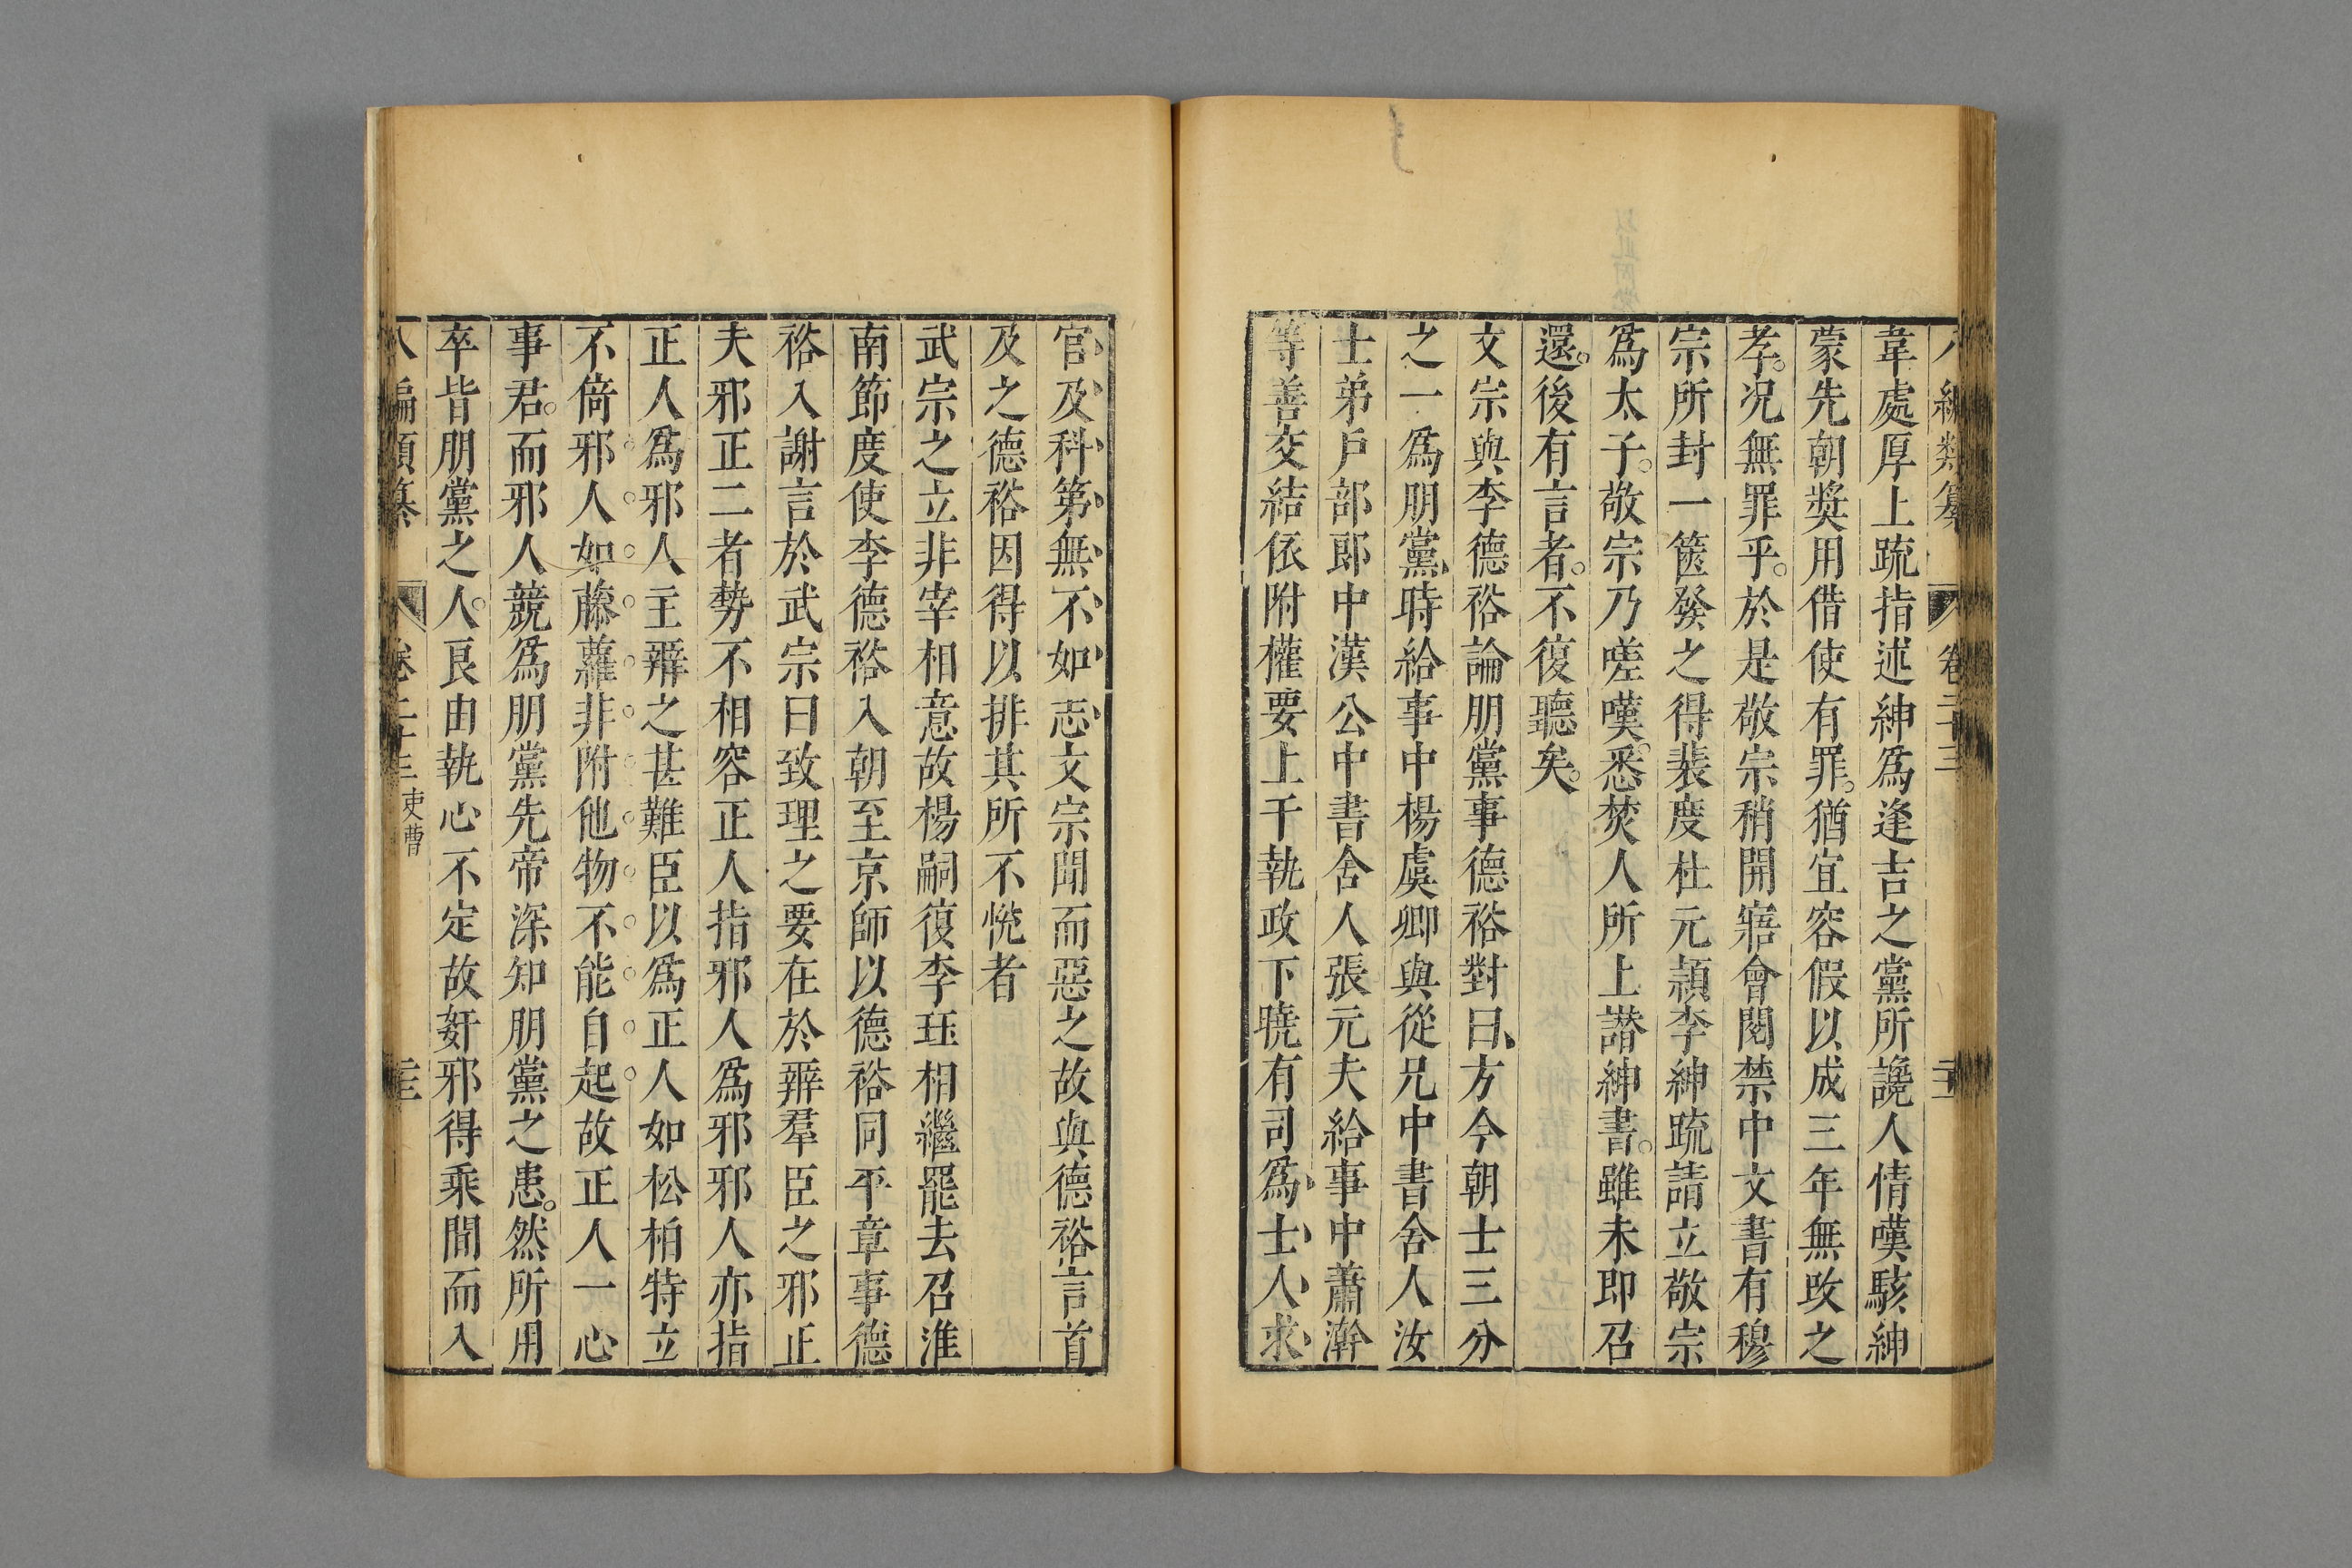 韋處厚上疏指述紳爲逢吉之黨所讒人情嘆駭紳
蒙先朝奬用借使有罪猶宜容假以成三年無改之
孝况無罪乎於是敬宗稍開寤會閱禁中文書有穆
宗所封一篋發之得裴度杜元頴李紳疏請立敬宗
爲太子敬宗乃嗟嘆悉焚人所上譛紳書雖未即召
還後有言者不復聽矣
文宗與李德裕論朋黨事德裕對曰方今朝士三分
之一爲朋黨時給事中楊虞卿與從兄中書舍人汝
士弟戶部郎中漢公中書舍人張元夫給事中蕭澣
等善交結依附權要上干執政下撓有司爲士人求
官及科第無不如志文宗聞而惡之故與德裕言首
及之德裕因得以排其所不悅者
武宗之立非宰相意故楊嗣復李珏相繼罷去召淮
南節度使李德裕入朝至京師以德裕同平章事德
裕入謝言於武宗曰致理之要在於辨羣臣之邪正
夫邪正二者勢不相容正人指邪人爲邪邪人亦指
正人爲邪人主辨之甚難臣以爲正人如松柏特立
不倚邪人如藤蘿非附他物不能自起故正人一心
事君而邪人競爲朋黨先帝深知朋黨之患然所用
卒皆朋黨之人良由執心不定故奸邪得乘間而入
八編類纂 卷二十三 吏曹